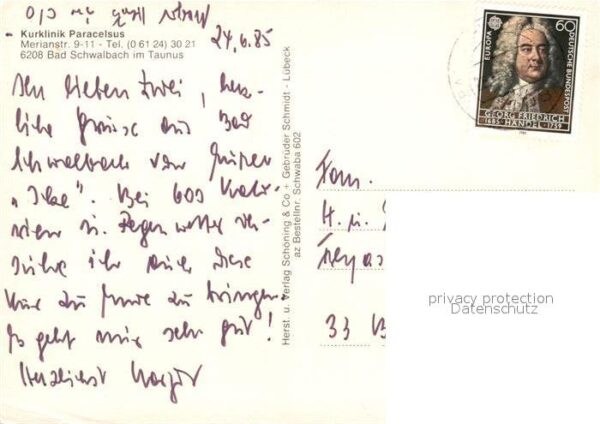 Kurklinik Paracelsus
Merianstr. 9-11 - Tel. (0 61 24) 30 21
6208 Bad Schwalbach im Taunus
24.6.85
Ihr lieben zwei, herz-
liche Grüsse aus Bad
Schwalbach von
"Ilse". Bei 600 Kalo-
rien u. Regenwetter ver-
suche ich mich diese
Kur zu Ende zu bringen.
Es geht mir sehr gut!
Herzlichst Margot
Herst. u. Verlag Schöning & Co + Gebrüder Schmidt - Lübeck
az Bestellnr. Schwaba 602
EUROPA
60
DEUTSCHE BUNDESPOST
GEORG FRIEDRICH
1685 HÄNDEL 1759
Fam.
H. u.
33
privacy protection
Datenschutz